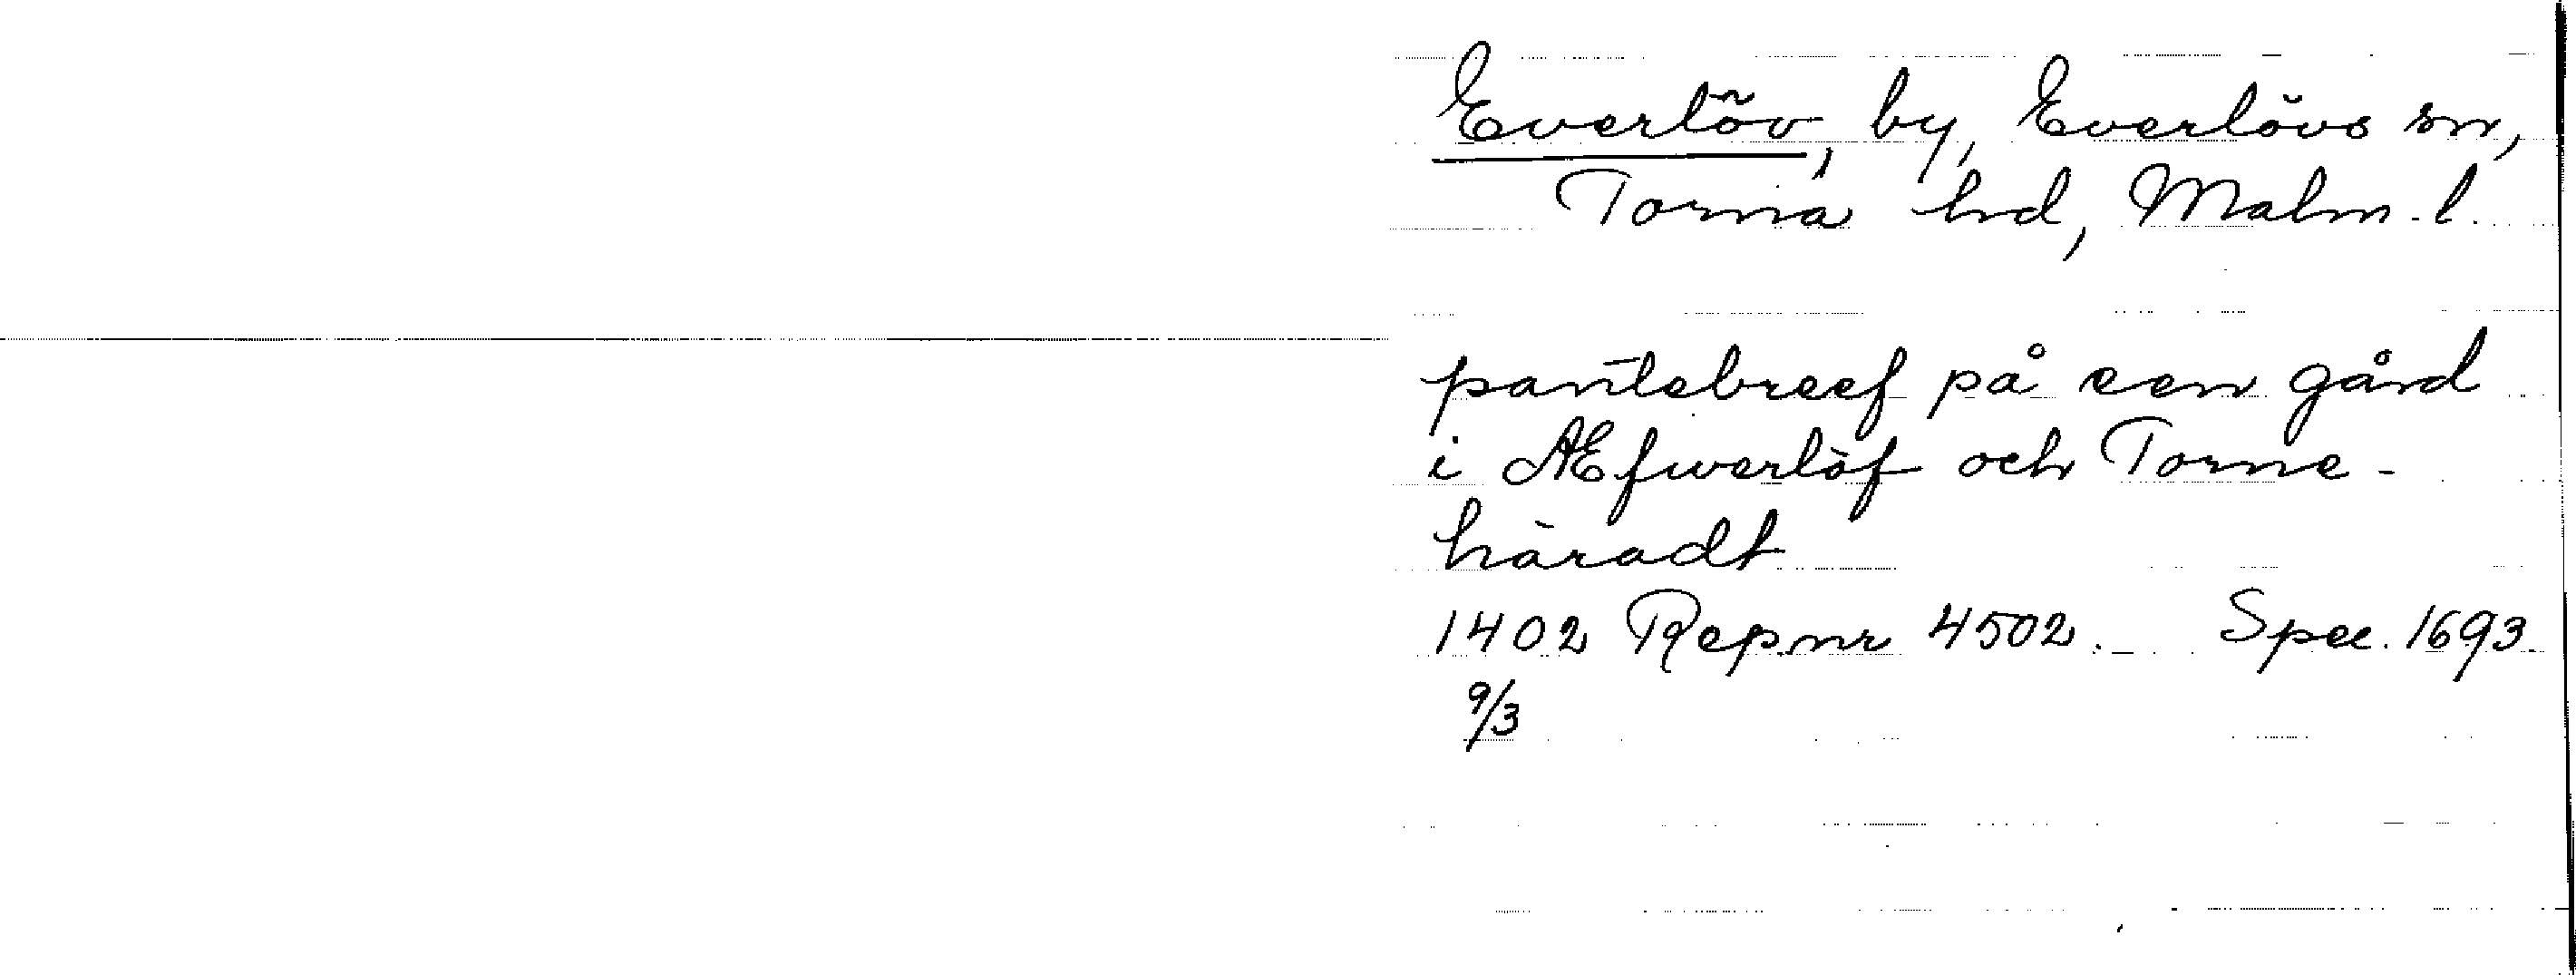 Everlöv, by, Everlövs sn,
Torna hd, Malm. l.
pantebreef på een gård
i Æfwerlöf och Torne-
häradt
1402 Rep. nr 4502. Spec. 1693.
9/3